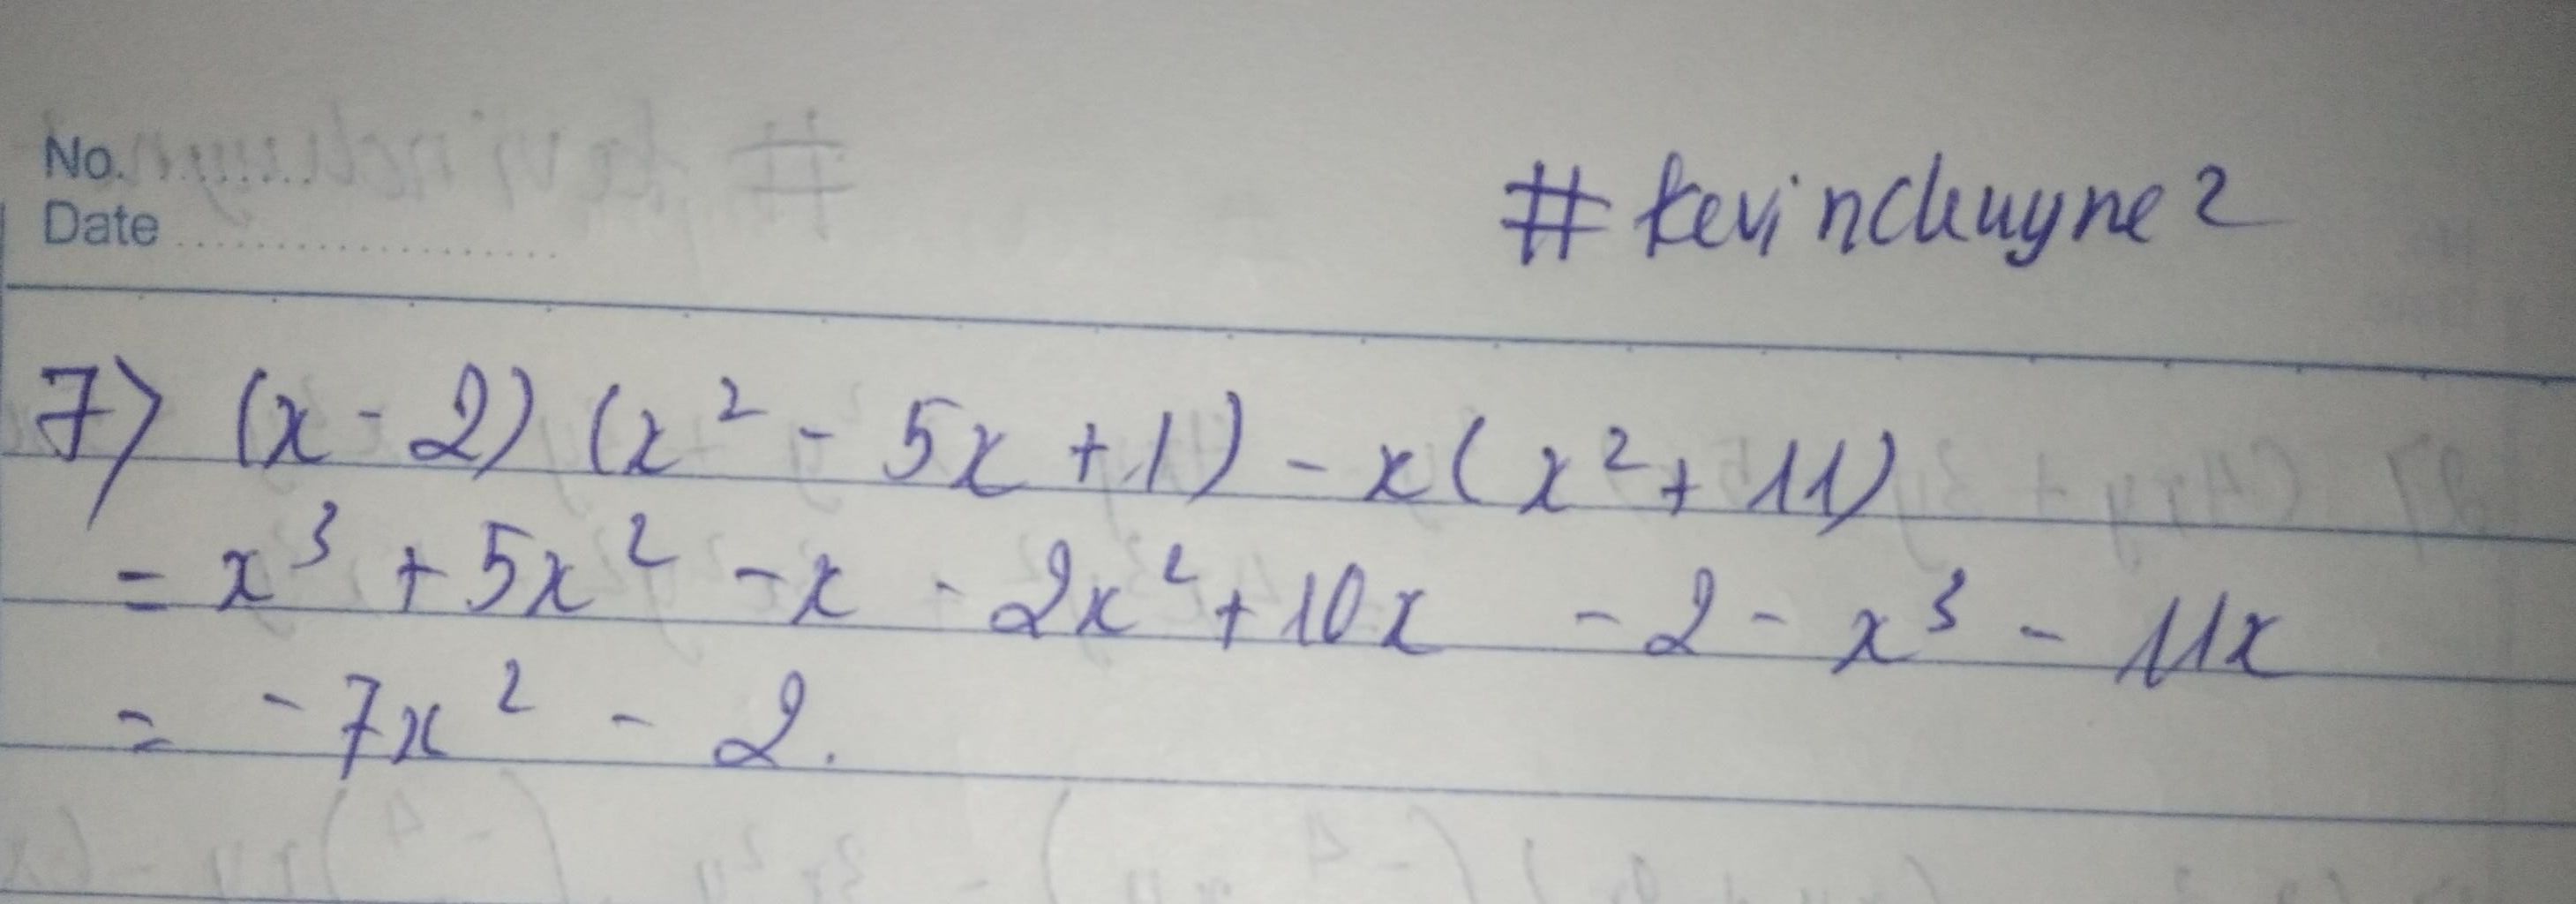 No.
Date
#kevinchuyne2
7) (x - 2) (x² - 5x + 1) - x(x² + 11)
= x³ + 5x² - x - 2x² + 10x - 2 - x³ - 11x
= -7x² - 2.